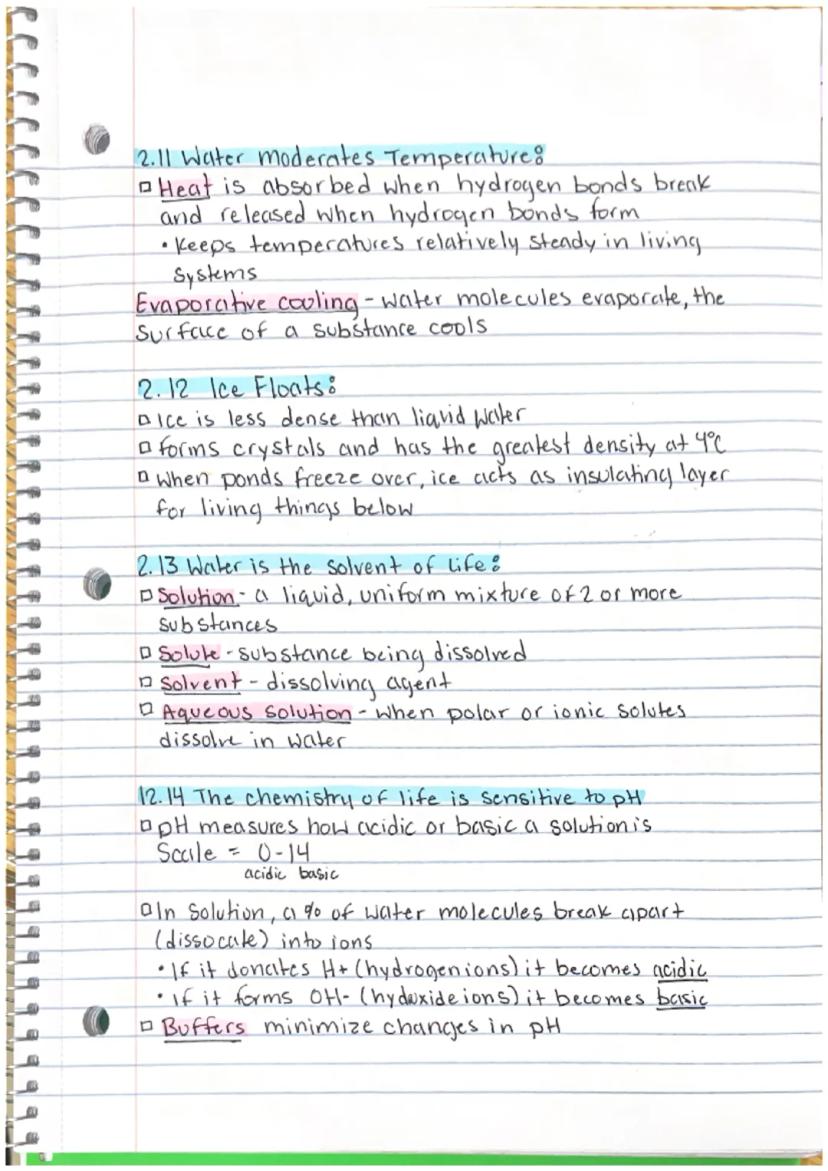 2.11 Water moderates Temperature:
▫ Heat is absorbed when hydrogen bonds break
and released when hydrogen bonds form
• Keeps temperatures relatively steady in living
systems
Evaporative cooling - water molecules evaporate, the
surface of a substance cools
2.12 Ice Floats:
▫ Ice is less dense than liquid water
▫ forms crystals and has the greatest density at 4°C
▫ When ponds freeze over, ice acts as insulating layer
for living things below
2.13 Water is the solvent of life:
▫ Solution - a liquid, uniform mixture of 2 or more
substances
▫ Solute - substance being dissolved
▫ Solvent - dissolving agent
▫ Aqueous solution - when polar or ionic solutes
dissolve in water
12.14 The chemistry of life is sensitive to pH
▫ pH measures how acidic or basic a solution is
Scale = 0-14
acidic basic
▫ In solution, a % of water molecules break apart
(dissocate) into ions
• If it donates H+ (hydrogen ions) it becomes acidic
• if it forms OH- (hyduxide ions) it becomes basic
▫ Buffers minimize changes in pH